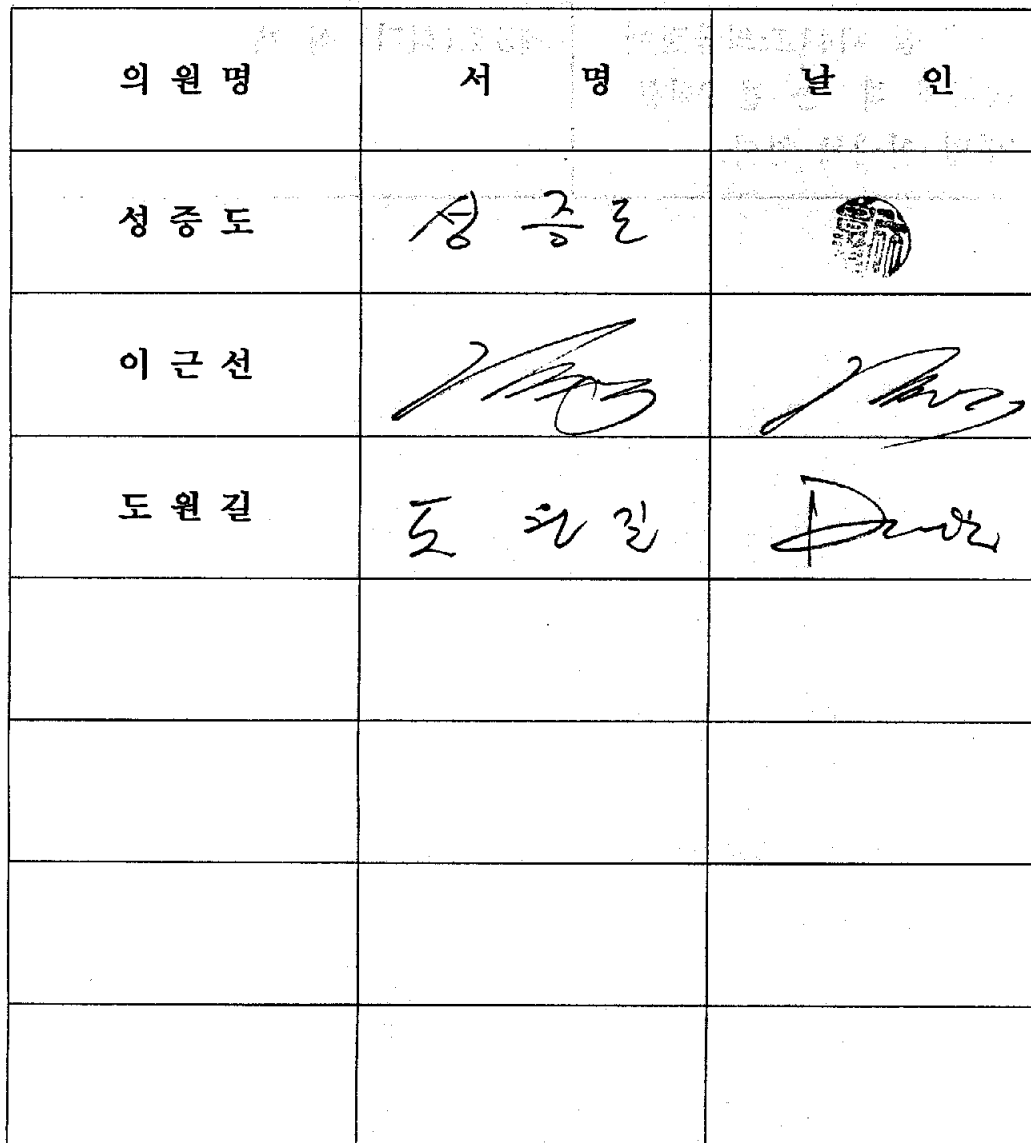 의 원 명 서 명 날 인
성 증 도 성 증 도
이 근 선
도 원 길 도 원 길